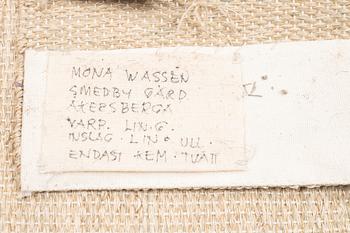 MONA WASSÉN
SMEDBY GÅRD
ÅKERSBERGA
VARP. LIN.G.
INSLAG LIN ULL.
ENDAST KEM. TVÄTT